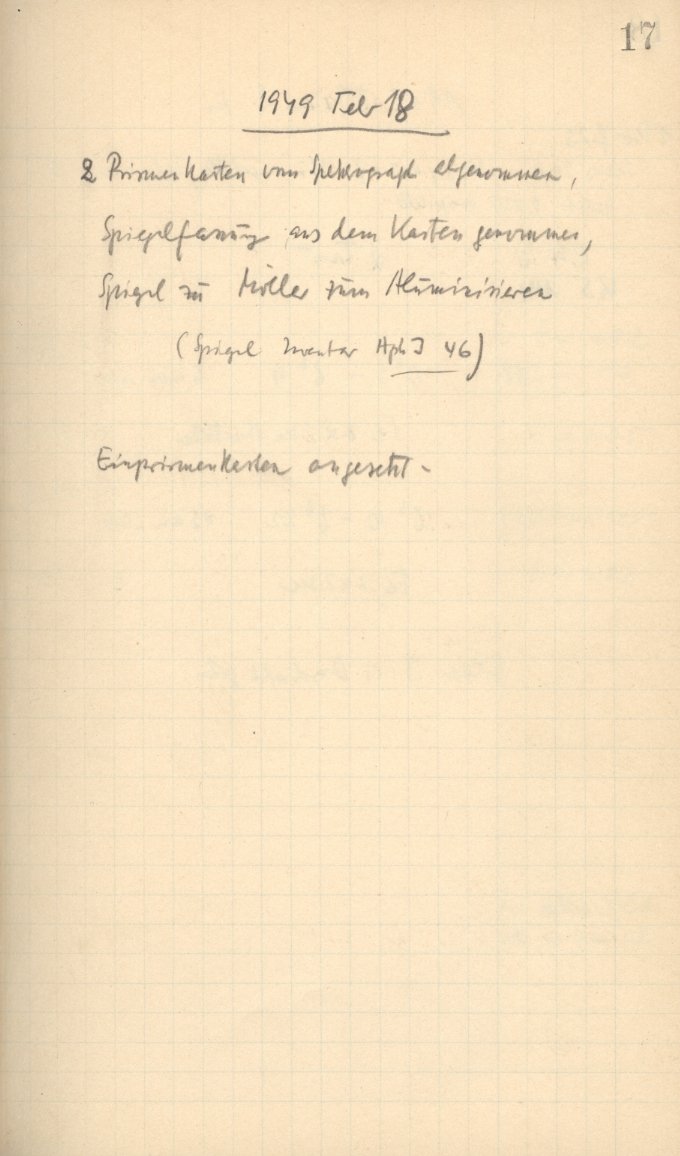 17
1949 Feb 18
2 Prismenkasten vom Spektrograph abgenommen,
Spiegelfassung aus dem Kasten genommen,
Spiegel zu Möller zum Aluminisieren
(Spiegel Inventar Aph I 46)
Einprismenkasten angesetzt.